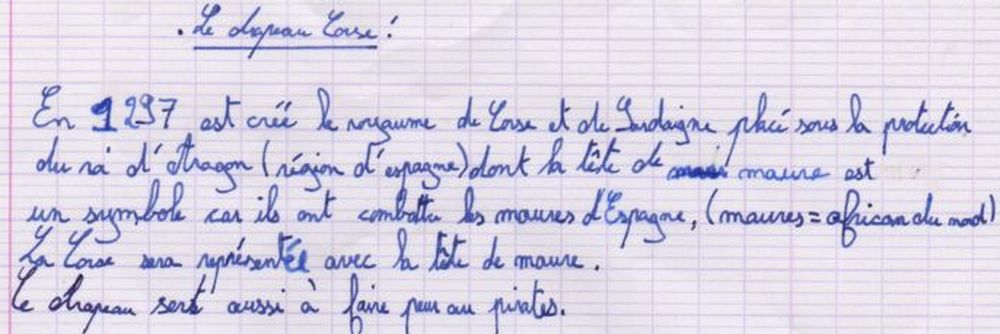 . Le drapeau Corse :
En 1297 est créé le royaume de Corse et de Sardaigne placé sous la protection
du roi d'Aragon (région d'espagne) dont la tête de maure est
un symbole car ils ont combattu les maures d'Espagne, (maures = african du nord)
La Corse sera représentée avec la tête de maure.
Le drapeau sert aussi à faire peur au pirates.